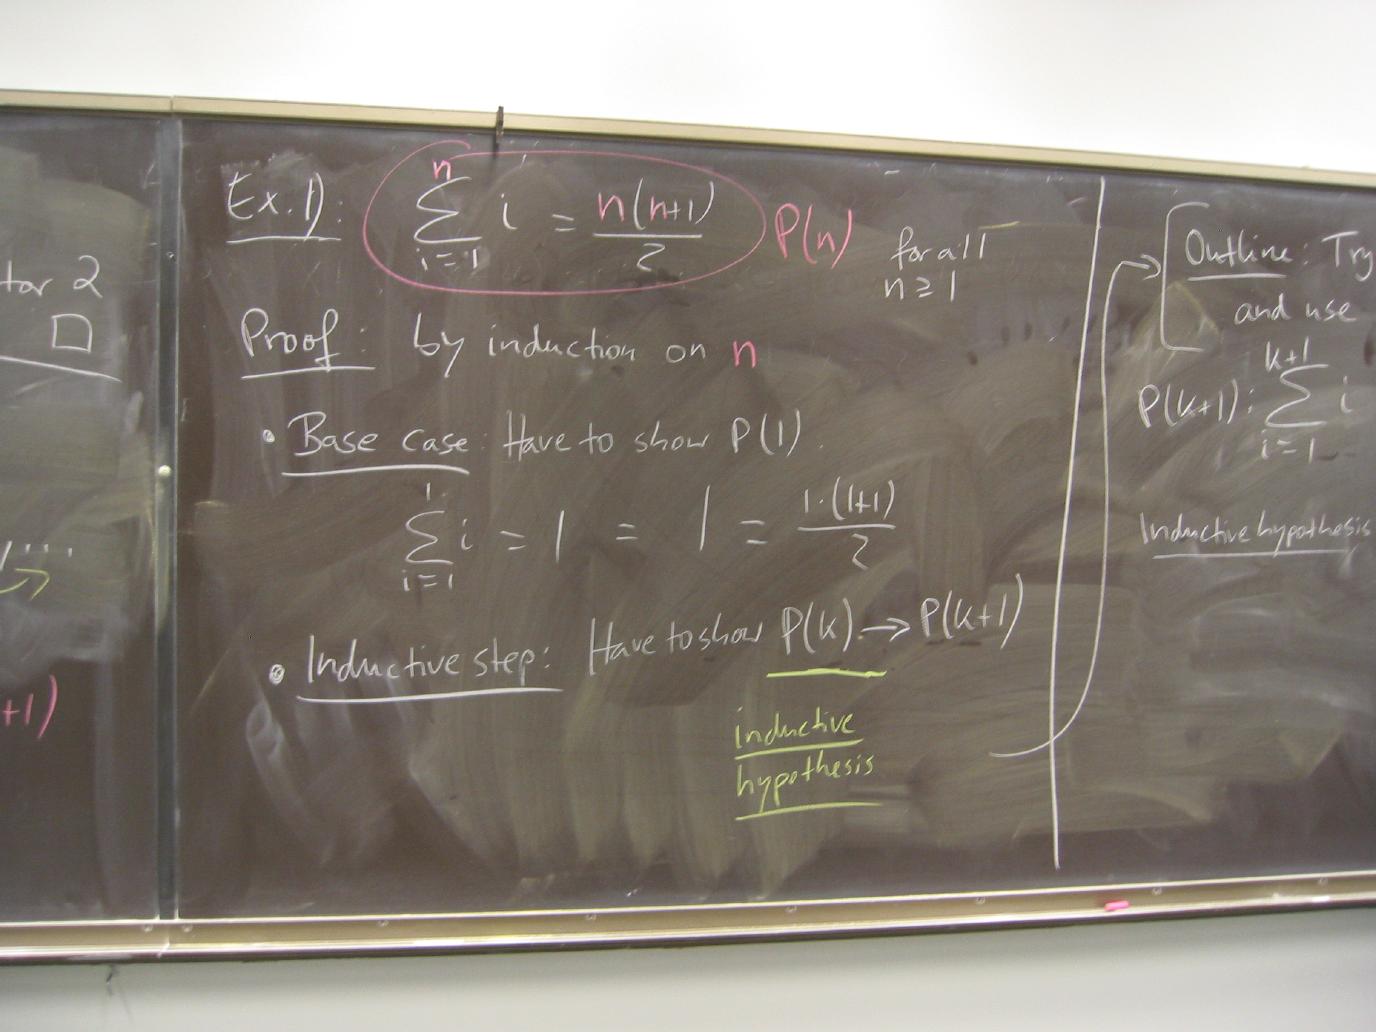 tor 2
□
, ...
+1)
Ex. 1): \sum_{i=1}^{n} i = \frac{n(n+1)}{2} P(n) for all
n ≥ 1
Proof: by induction on n
• Base case: Have to show P(1).
\sum_{i=1}^{1} i = 1 = 1 = \frac{1·(1+1)}{2}
• Inductive step: Have to show P(k) → P(k+1)
inductive
hypothesis
Outline: Try
and use
P(k+1): \sum_{i=1}^{k+1} i
Inductive hypothesis